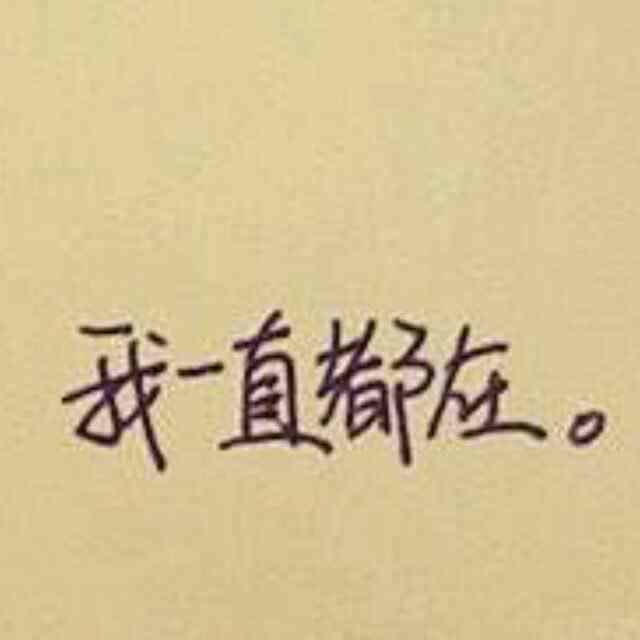 我一直都在。